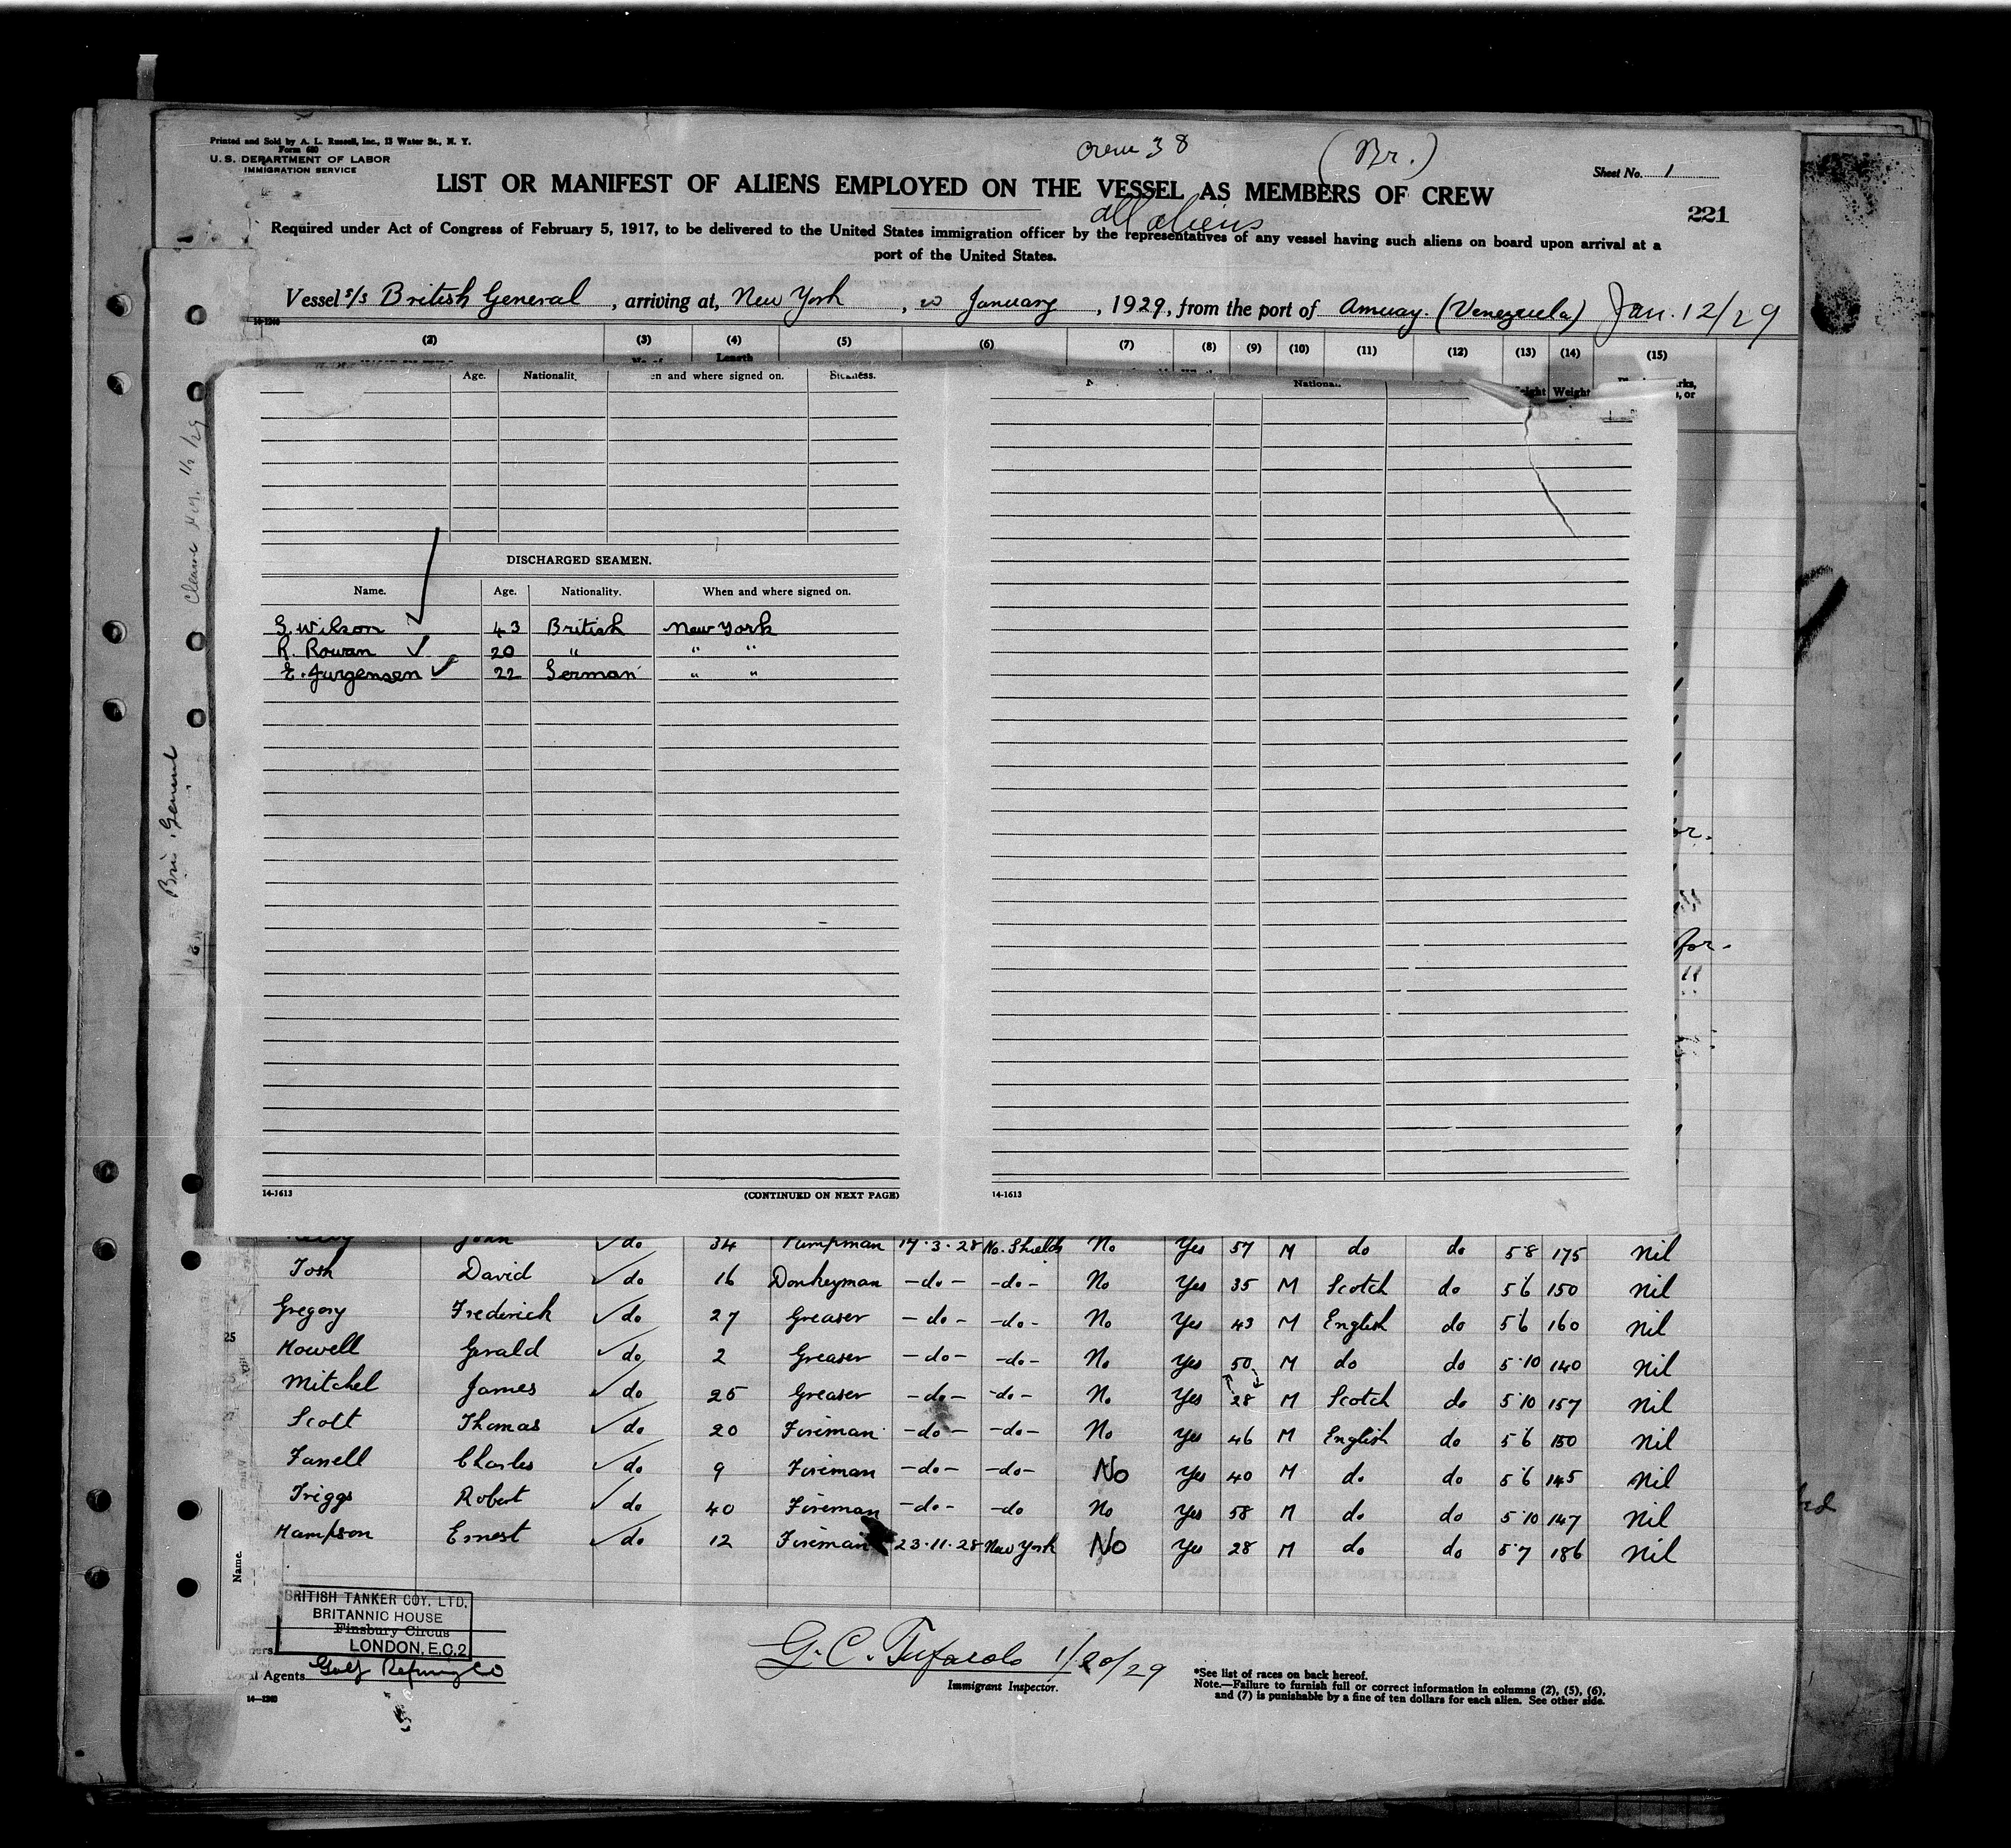 Printed and Sold by A. L. Russell, Inc., 13 Water St., N. Y.
Form 680
U. S. DEPARTMENT OF LABOR
IMMIGRATION SERVICE
Crew 38
(Br.)
Sheet No. 1
LIST OR MANIFEST OF ALIENS EMPLOYED ON THE VESSEL AS MEMBERS OF CREW
all aliens
221
Required under Act of Congress of February 5, 1917, to be delivered to the United States immigration officer by the representatives of any vessel having such aliens on board upon arrival at a
port of the United States.
Vessel s/s British General, arriving at, New York, 20 January, 1929, from the port of Amuay. (Venezuela) Jan. 12/29
(2) (3) (4) (5) (6) (7) (8) (9) (10) (11) (12) (13) (14) (15)
Length
Age. en and where signed on.
Weight
DISCHARGED SEAMEN.
Name. Age. Nationality. When and where signed on.
G. Wilson 43 British New York
R. Rowan 20 " " "
E. Jurgensen 22 German " "
14-1613 (CONTINUED ON NEXT PAGE) 14-1613
John ✓ do 34 Pumpman 17.3.28 No. Shields No Yes 57 M do do 5 8 175 Nil
Tosh David ✓ do 16 Donkeyman -do- -do- No Yes 35 M Scotch do 5 6 150 Nil
Gregory Frederick ✓ do 27 Greaser -do- -do- No Yes 43 M English do 5 6 160 Nil
25
Howell Gerald ✓ do 2 Greaser -do- -do- No Yes 50 M do do 5 10 140 Nil
Mitchel James ✓ do 25 Greaser -do- -do- No Yes 28 M Scotch do 5 10 157 Nil
Scott Thomas ✓ do 20 Fireman -do- -do- No Yes 46 M English do 5 6 150 Nil
Farrell Charles ✓ do 9 Fireman -do- -do- No Yes 40 M do do 5 6 145 Nil
Triggs Robert ✓ do 40 Fireman -do- -do No Yes 58 M do do 5 10 147 Nil
Hampson Ernest ✓ do 12 Fireman 23.11.28 New York No Yes 28 M do do 5 7 186 Nil
Name.
Bri. General
BRITISH TANKER COY. LTD.
BRITANNIC HOUSE
Finsbury Circus
LONDON, E.C.2
Owners
Local Agents Gulf Refining Co
14-1240
G. C. Tufarolo 1/20/29
Immigrant Inspector.
*See list of races on back hereof.
Note.—Failure to furnish full or correct information in columns (2), (5), (6),
and (7) is punishable by a fine of ten dollars for each alien. See other side.